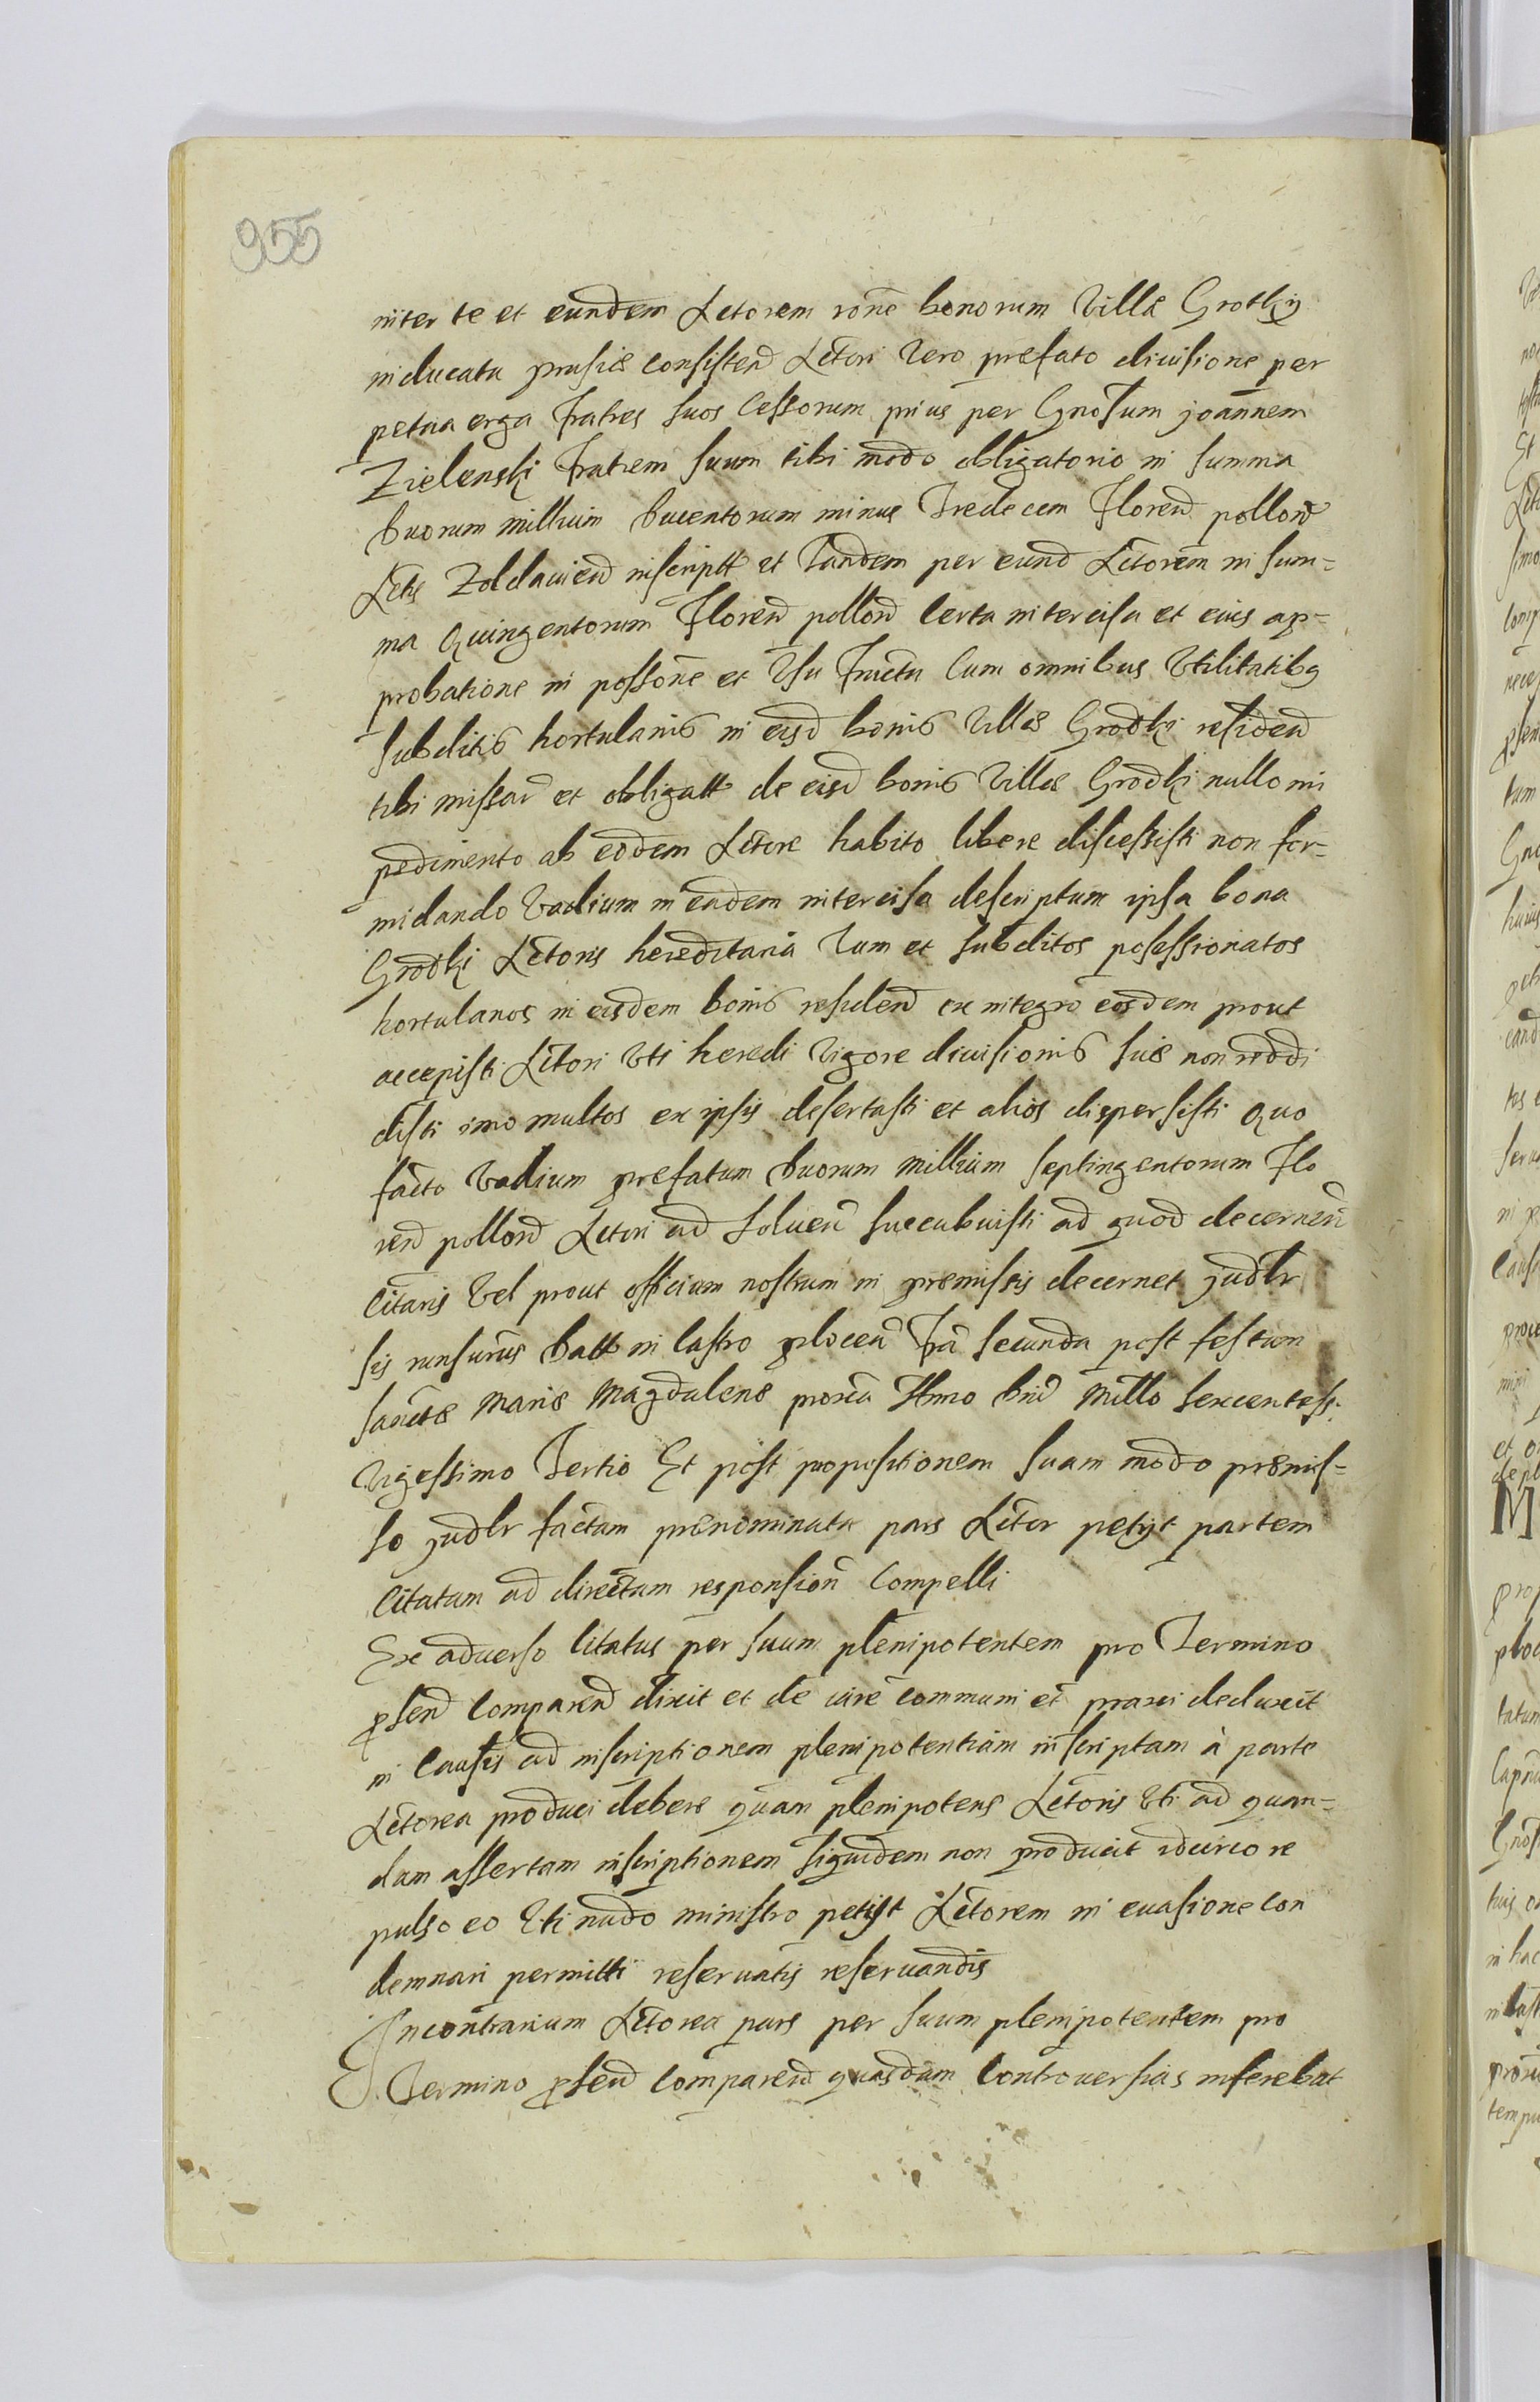 955
inter te et eundem Actorem rõne bonorum Villæ Grotky
in ducatu prusiæ consisteñ Actori Vero prefato diuisione per
petua erga Fratres suos Cessorum prius per Gnosum joannem
Zielenski Fratrem suum tibi modo obligatorio in summa
Duorum millium Ducentorum minus Tredecem Floreñ polloñ
Actis Zoldauieñ inscriptt et Tandem per eund Actorem in sum=
ma Quingentorum Floreñ polloñ Certa intercisa et eius ap=
probatione in possone et Vsu Fructu Cum omnibus Vtilitatibq
subditis hortulanis in eisd bonis Villæ Grodki resideñ
tibi missar et obligatt de eisd bonis Villæ Grodki nullo im
pedimento ab eodem Actore habito libere discessisti non for=
midando Vadium in eadem intercisa descriptum ipsa bona
Grodki Actoris hereditaria Tum et subditos posessionatos
hortulanos in eisdem bonis resideñ ex integro eosdem prout
accepisti Actori Vti heredi Vigore diuisionis suæ non reddi
disti imo multos ex ipsis desertasti et alios dispersisti Quo
facto Vadium prefatum Duorum millium septingentorum Flo
reñ polloñ Actori ad soluen succubuisti ad quod decerneñ
Citaris Vel prout officium nostrum in premissis decernet judlr
sis runsurus Datt in Castro ploceñ Fra secunda post festum
sanctæ Mariæ Magdalenæ proxa Anno Dni Millo sexcentess.
Vigessimo Tertio Et post propositionem suam modo præmis=
so judlr factam prænominata pars Actor petijt partem
Citatam ad directam responsion Compelli
Ex aduerso Citatus per suum plenipotentem pro Termino
pseñ Compareñ dixit et de iure communi et praxi deduxit
in Causis ad inscriptionem plenipotentiam inscriptam à parte
Actorea produci debere quam plenipotens Actoris Vti ad quan=
dam assertam inscriptionem siquidem non producit idcirco re
pulso eo Vti nudo ministro petijt Actorem in euasione Con
demnari permitti reseruatis reseruandis
In contrarium Actorea pars per suum plenipotentem pro
Termino pseñ Compareñ quasdam Controuersias inferebat